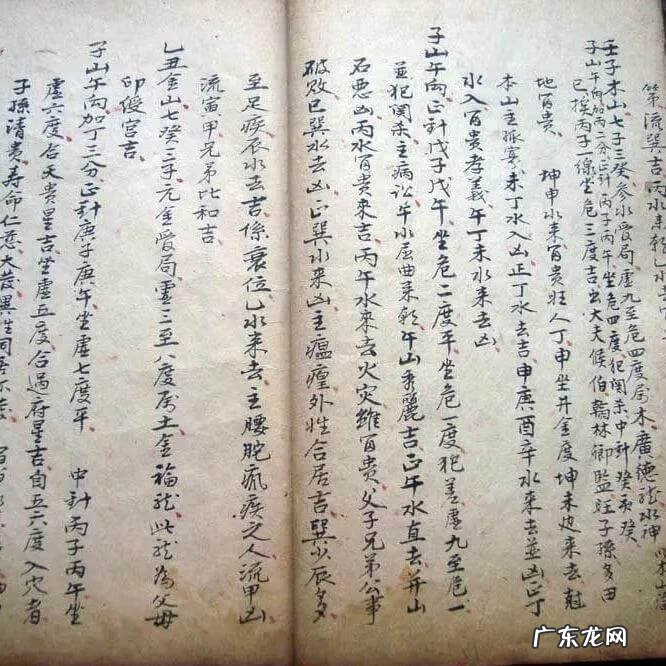 第流巽吉丙水来
壬子木山七子三癸参水受局虚九至危四度属木廣德龍水神
子山午向加丙二分正針丙子丙午坐危四度犯関杀中針癸亥癸
巳挨丙子線坐危三度吉出大夫候伯翰林卿監旺子孫多田
地百貴 坤申水来百貴旺人丁申坐井金度坤未边来去尅
本山主孤寡未丁水入凶正丁水去吉申庚酉辛水来去並凶丁
水入百貴孝義午丁未水来去凶
子山午向正針戊子戊午坐危二度平坐危一度犯差虚九至危一
並犯関杀主病訟午水屈曲来朝午山秀麗吉正午水直去幷山
石惡凶丙水百貴来吉丙午水来去火灾維百貴父子兄弟公事
破敗巳巽水去凶正巽水来凶主瘟瘽外性合居吉巽少辰多
至足疾辰水去吉係衰位乙水来去主腰駝瘋疾之人流甲凶
流寅甲兄弟比和吉
乙丑金山七癸三子元金受局虚三至八度属土金福龍此龍為父母
印綬宮吉
子山午向加丁三分正針庚子庚午坐虚七度平 中針丙子丙午坐
虚六度合天貴星吉坐虚五度合過府星吉自五六度入穴者
子孫清貴壽卯仁慈大發異性同居
广东龙网